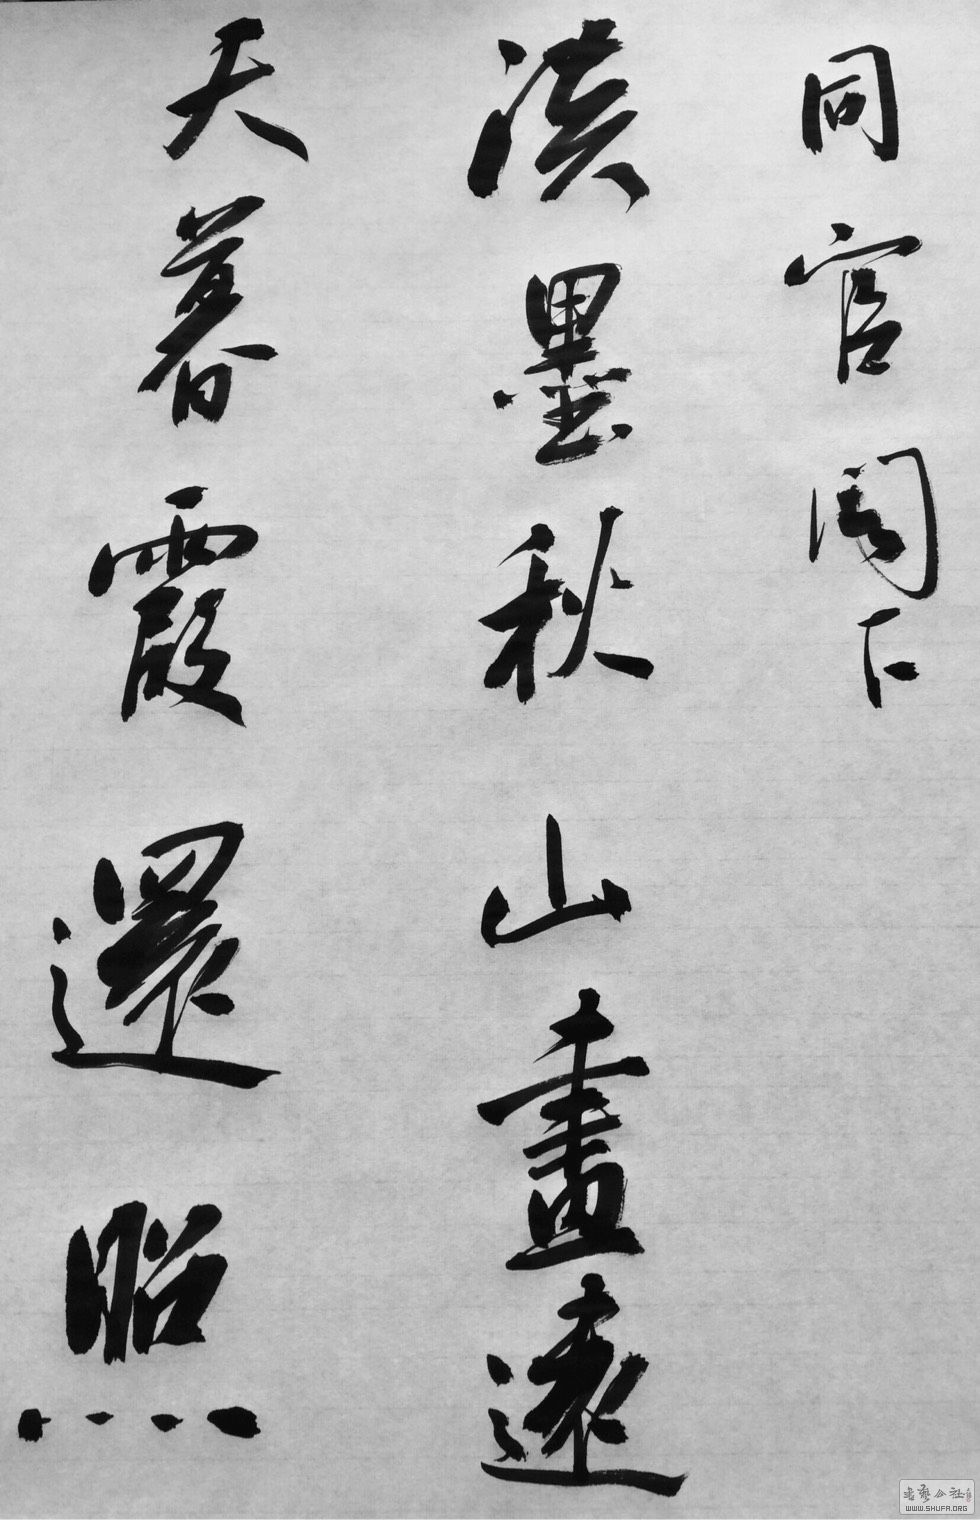 同官阁下
淡墨秋山畫遠
天暮霞還照
WWW.SHUFA.ORG